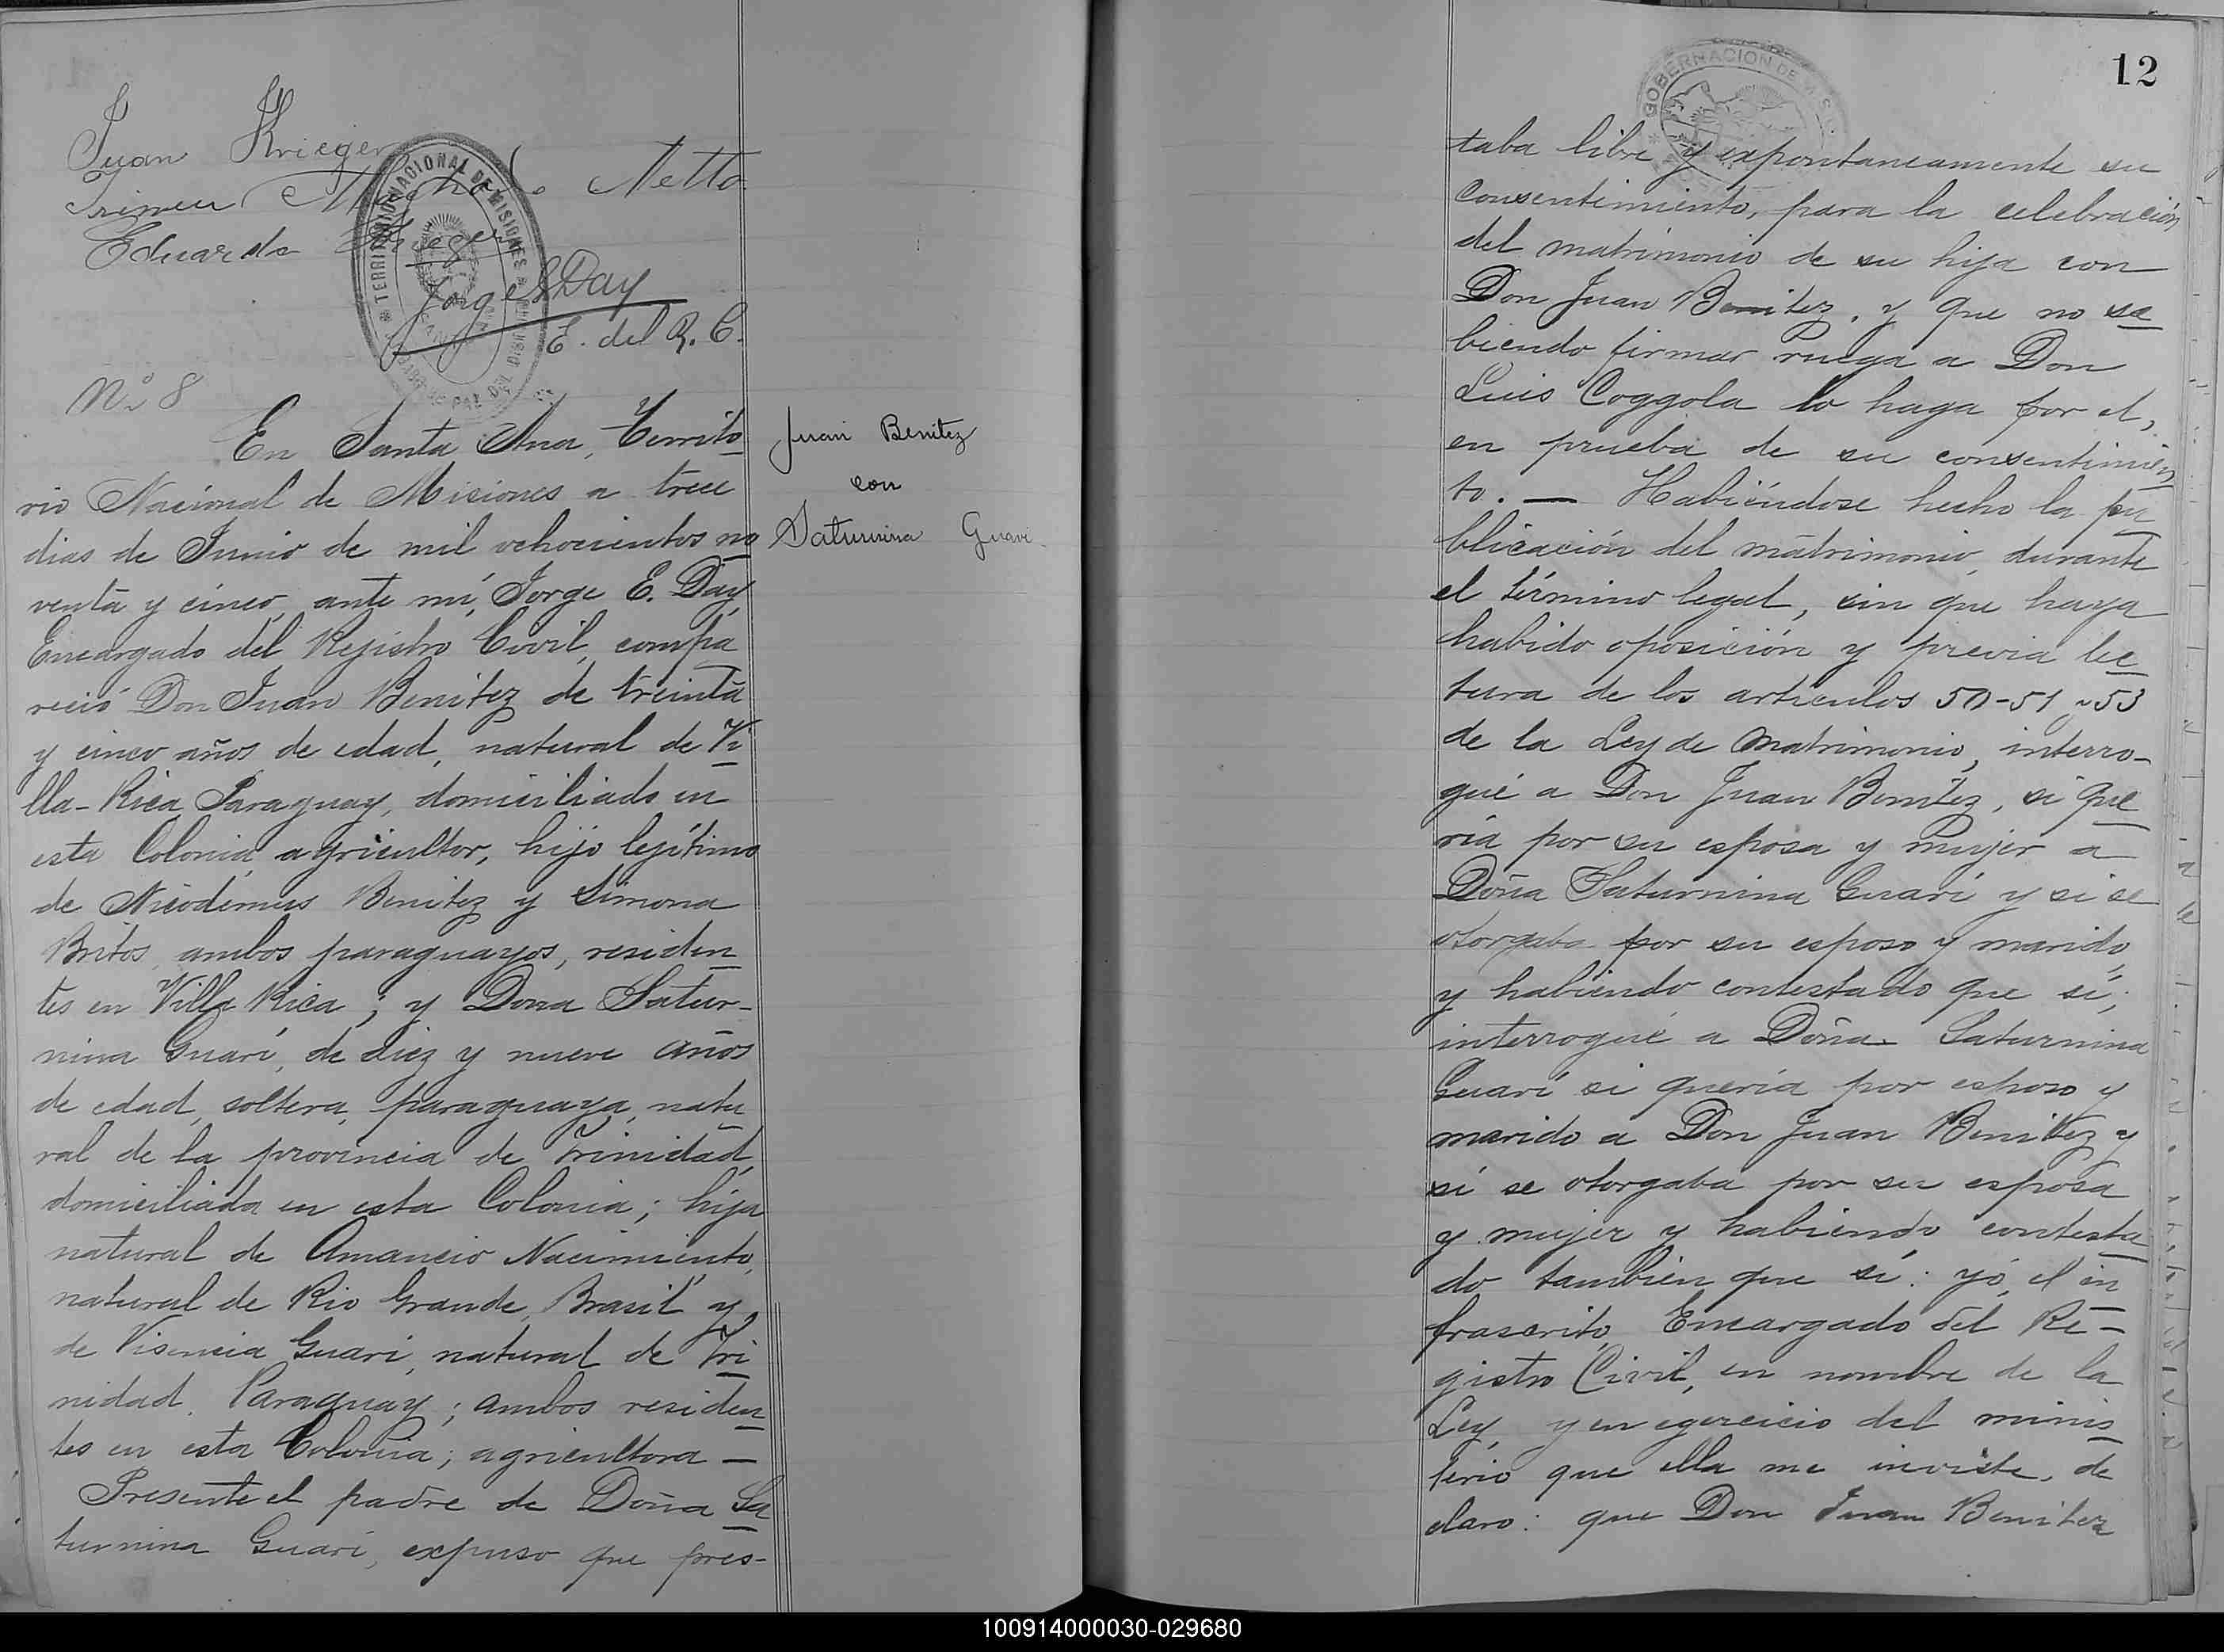 Juan Krieger
Netto
Eduardo Krieger
Jorge E Day
E. del R. C.
TERRITORIO NACIONAL DE MISIONES
Nº 8
En Santa Ana, Territo
rio Nacional de Misiones a trece
dias de Junio de mil ochocientos no
venta y cinco, ante mí, Jorge E. Day
Encargado del Rejistro Civil, compa
reció Don Juan Benitez de treinta
y cinco años de edad, natural de Vi
lla-Rica Paraguay, domiciliado en
esta Colonia, agricultor, hijo lejítimo
de Nicodemus Benitez y Simona
Britos, ambos paraguayos, residen
tes en Villa Rica; y Doña Satur-
nina Guarí, de diez y nueve años
de edad, soltera, paraguaya, natu
ral de la provincia de Trinidad,
domiciliada en esta Colonia; hija
natural de Amancio Nacimiento,
natural de Rio Grande, Brasil y
de Visencia Guari, natural de Tri
nidad, Paraguay; ambos residen
tes en esta Colonia; agricultora —
Presente el padre de Doña Sa
turnina Guarí, expuso que pres-
Juan Benitez
con
Saturnina Guari
GOBERNACION DE MISIONES
12
taba libre y expontaneamente su
consentimiento, para la celebración
del matrimonio de su hija con
Don Juan Benitez, y que no sa
biendo firmar ruega a Don
Luis Coggola lo haga por el,
en prueba de su consentimien
to. — Habiéndose hecho la pu
blicación del matrimonio, durante
el término legal, sin que haya
habido oposición y previa lec
tura de los articulos 50-51 y 53
de la Ley de Matrimonio, interro-
gué a Don Juan Benitez, si que
ría por su esposa y mujer a
Doña Saturnina Guarí y si se
otorgaba por su esposo y marido
y habiendo contestado que sí;
interrogué a Doña Saturnina
Guarí si quería por esposo y
marido a Don Juan Benitez y
si se otorgaba por su esposa
y mujer y habiendo contesta
do tambien que sí: yó, el in
frascrito, Encargado del Re-
gistro Civil, en nombre de la
Ley, y en egercicio del minis
terio que ella me inviste, de
claro: que Don Juan Benitez
100914000030-029680